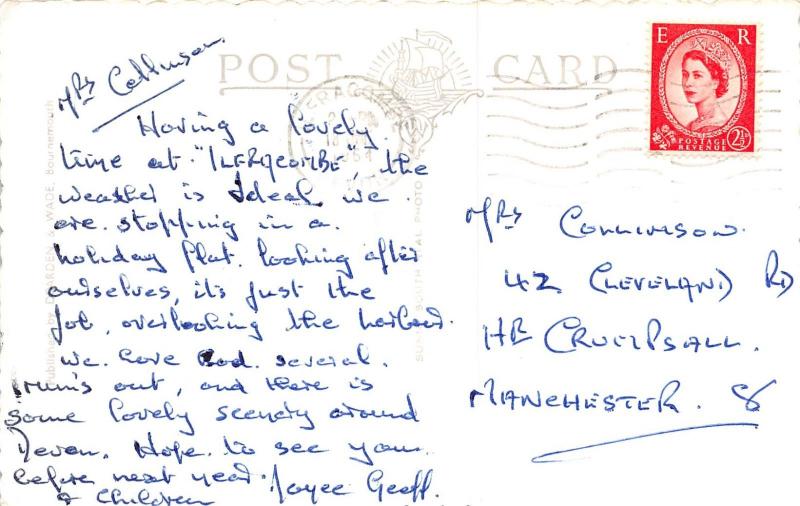 Mrs Collinson
POST CARD
ILFRACOMBE
E R
POSTAGE
REVENUE
2½
Having a lovely
time at "ILFRACOMBE", the
weather is ideal we
are stopping in a
holiday flat. looking after
ourselves, it's just the
job, overlooking the harbour.
we have had several
trums out, and there is
some lovely scenery around
Devon. Hope to see you
before next year. Joyce Geoff.
& Children
Mrs COLLINSON.
42 CLEVELAND RD
HR CRUMPSALL.
MANCHESTER. 8
Published by DEARDEN & WADE, Bournemouth